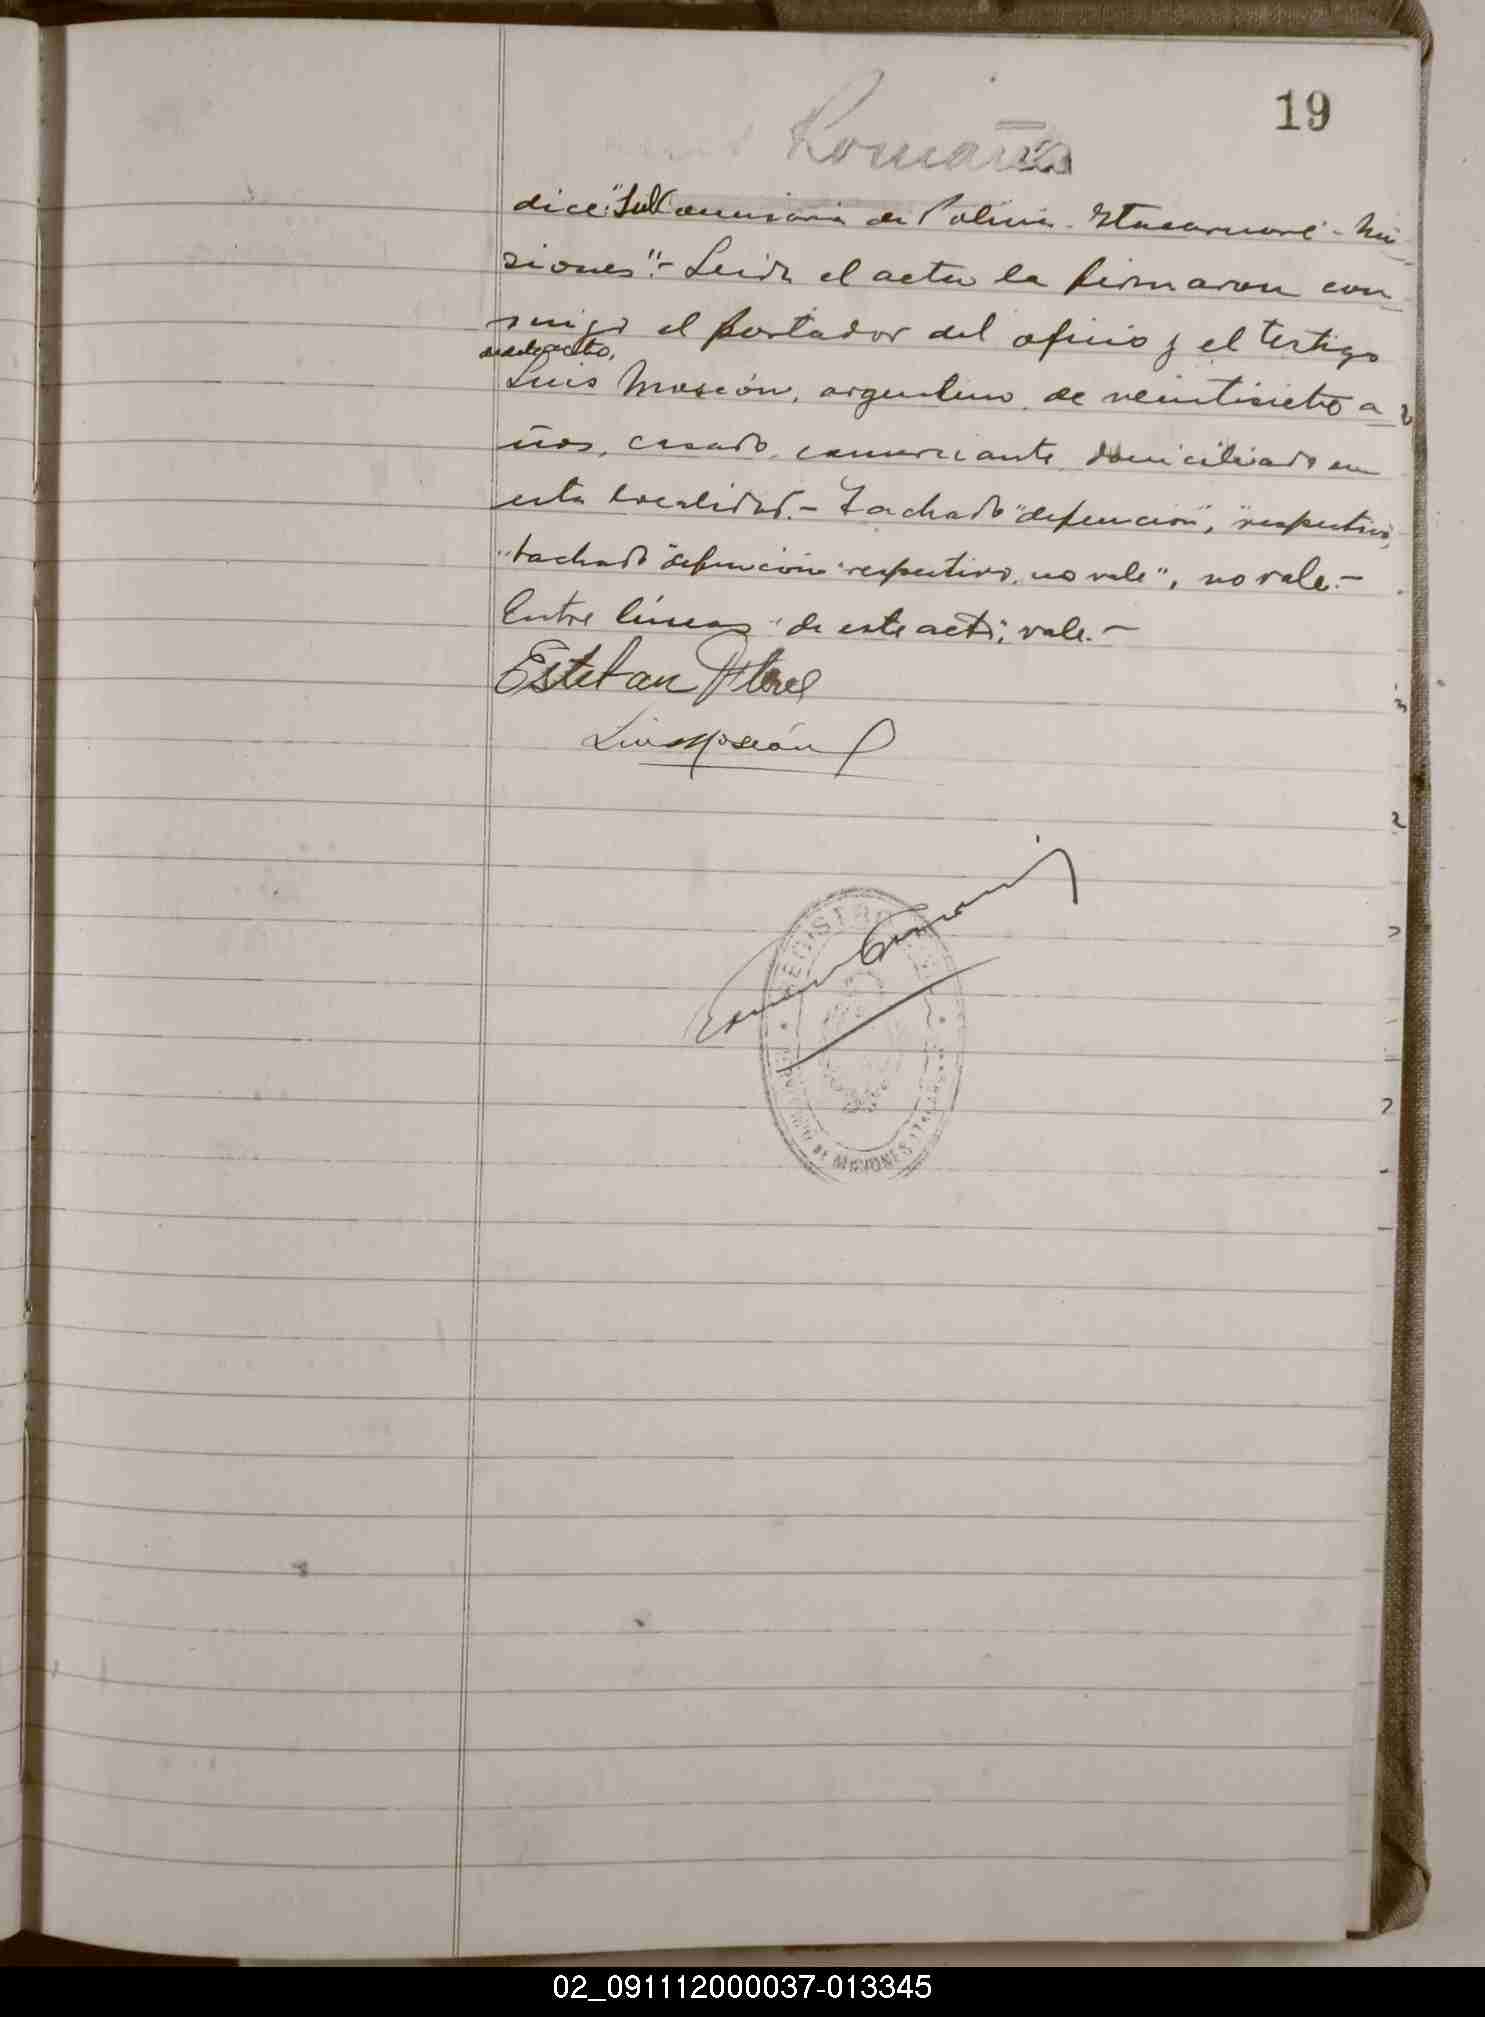 19
Romaña
dice: "Sub Comisaría de Policia - Itacaruaré - Mi
siones".- Leida el acta la firmaron con
migo el portador del oficio y el testigo
de este acto,
Luis Moscón, argentino, de veintisiete a
ños, casado, comerciante, domiciliado en
esta localidad.- Tachado "defuncion", "respectivo,
"tachado "defuncion" respectivo, no vale", no vale.-
Entre líneas "de este acto", vale.-
Esteban
Luis Moscón
REGISTRO
DE MISIONES
02_091112000037-013345